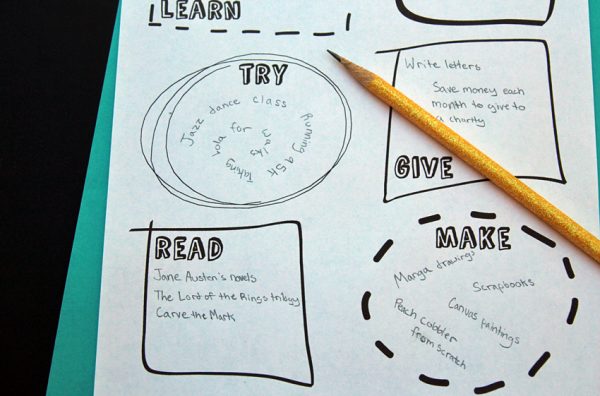 LEARN
TRY
Jazz dance class
Running a 5k
Taking
Lola for
walks
Write letters
Save money each
month to give to
a charity
GIVE
READ
Jane Austen's novels
The Lord of the Rings trilogy
Carve the Mark
MAKE
Manga drawings
Scrapbooks
Canvas paintings
Peach cobbler
from scratch